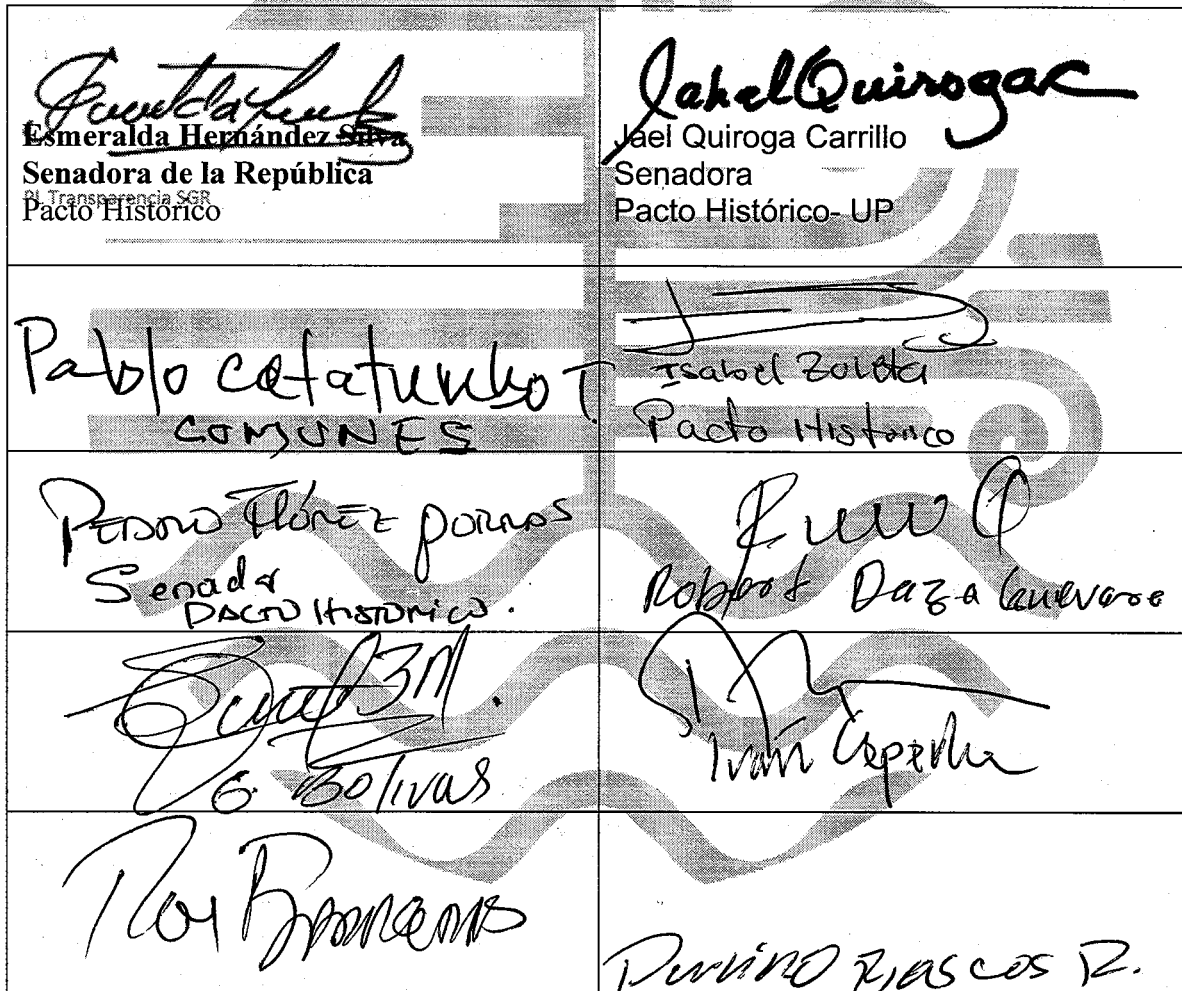 Esmeralda Hernández Silva
Senadora de la República
PL Transparencia SGR
Pacto Histórico
Jahel Quiroga C
Jael Quiroga Carrillo
Senadora
Pacto Histórico- UP
Pablo Catatumbo T.
COMUNES
Isabel Zuleta
Pacto Histórico
PEDRO FLÓREZ PORRAS
Senador
PACTO HISTÓRICO.
Robert Daza Guevara
G Bolivar
Iván Cepeda
Roy Barreras
RIASCOS R.